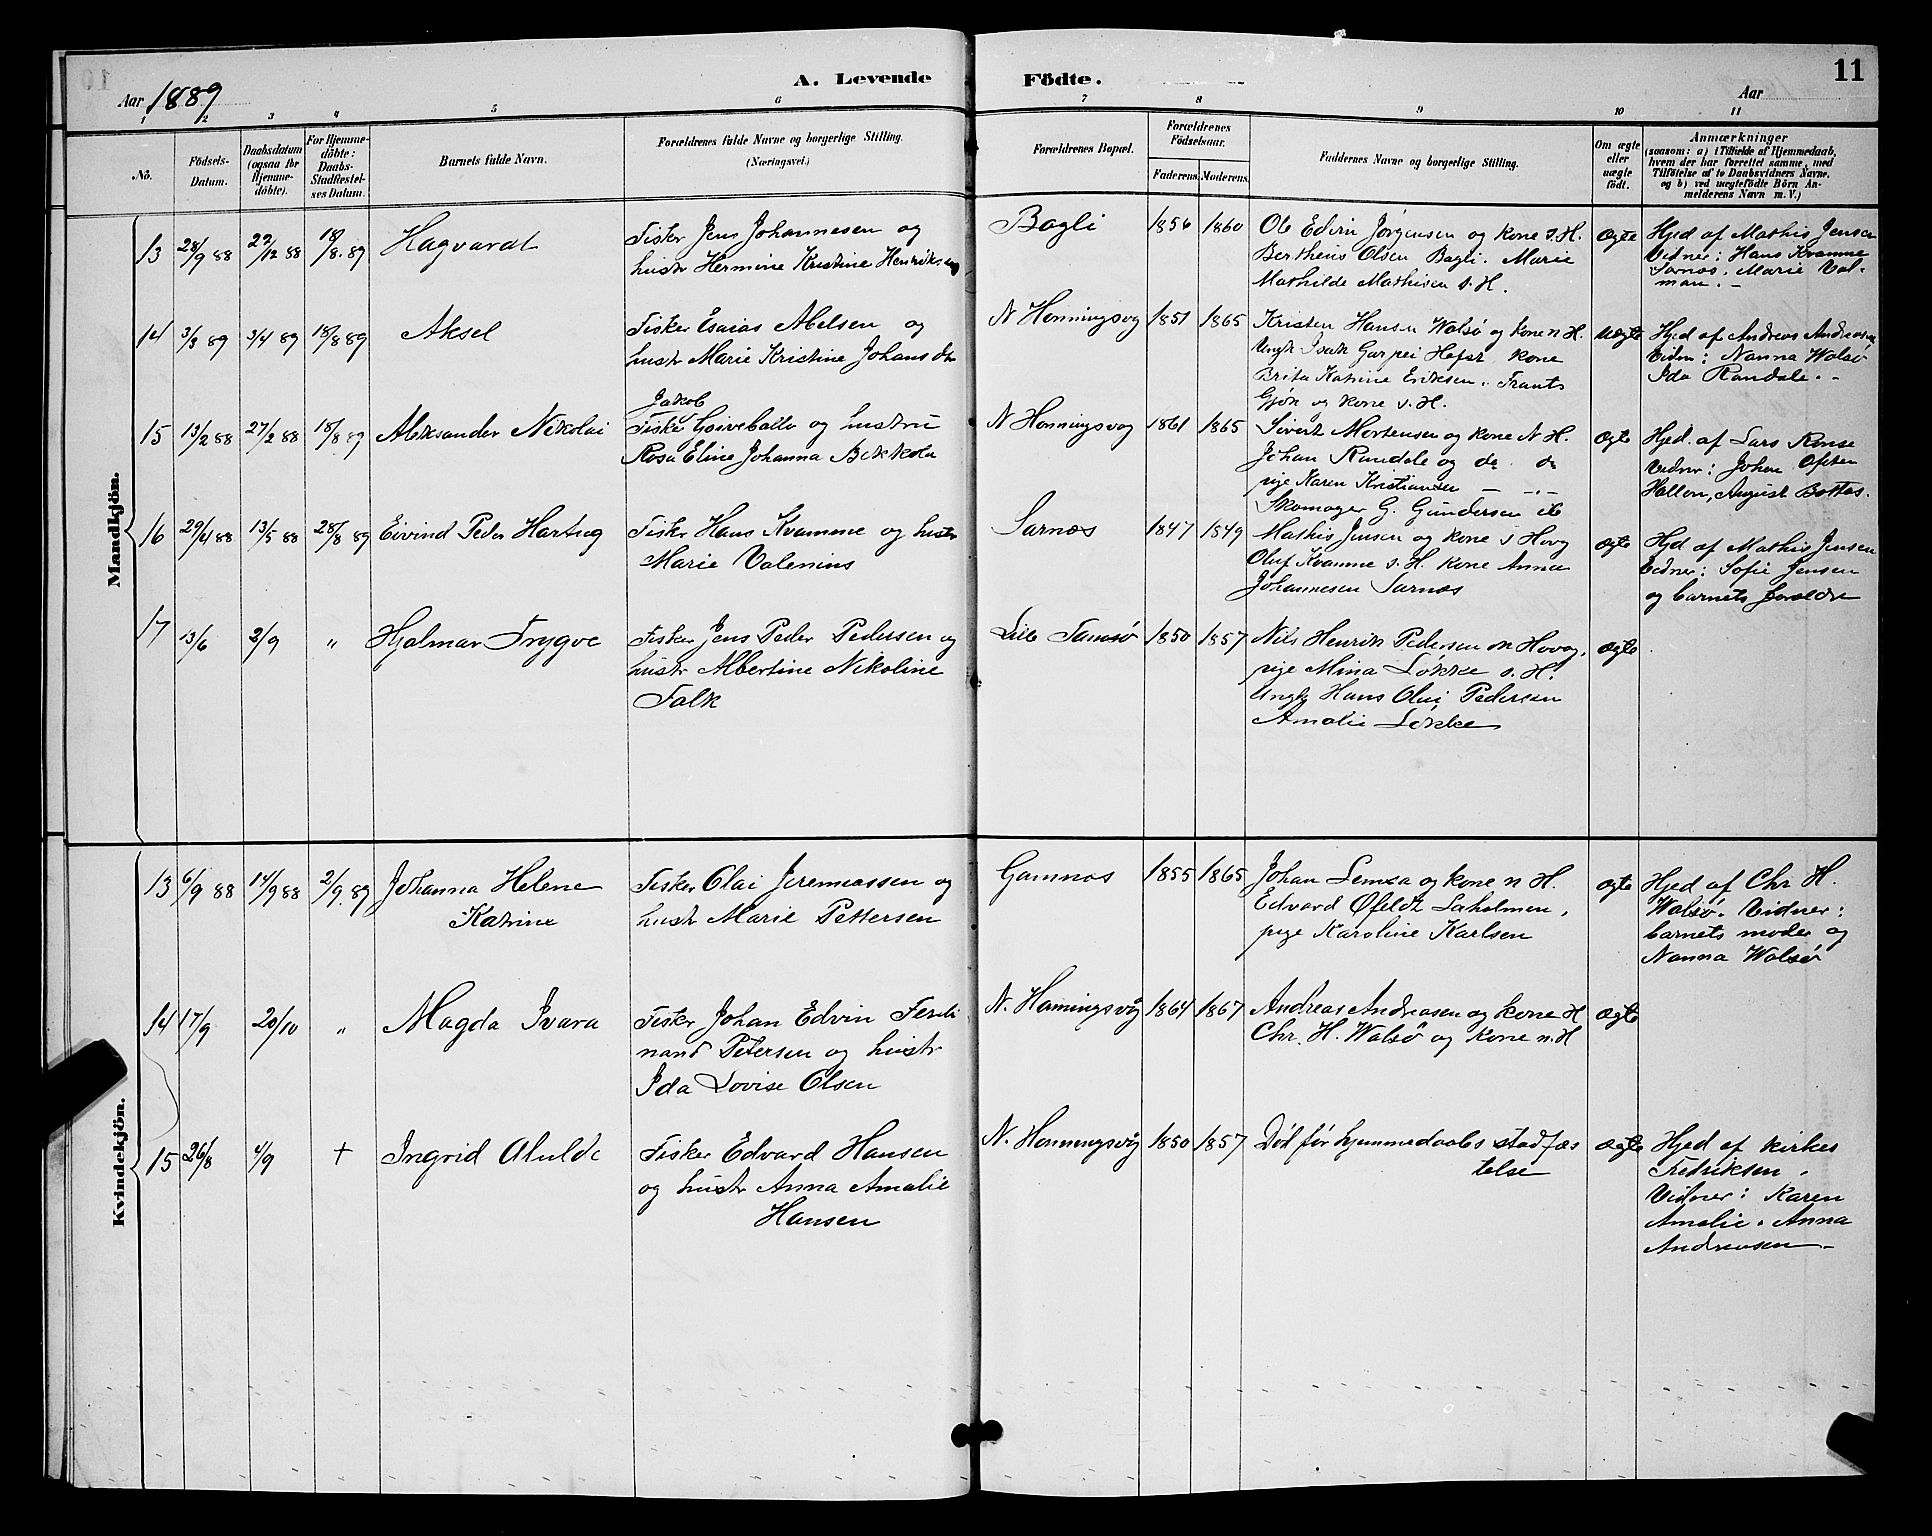 A. Levende Födte.
11
Aar 1889
Aar
1 2 3 4 5 6 7 8 9 10 11
No.
Födsels-Datum.
Daabsdatum (ogsaa for Hjemmedöbte).
For Hjemmedöbte: Daabs-Stadfæstelses Datum.
Barnets fulde Navn.
Forældrenes fulde Navne og borgerlige Stilling.
(Næringsvei.)
Forældrenes Bopæl.
Forældrenes Födselsaar.
Faderens. Moderens.
Faddernes Navne og borgerlige Stilling.
Om ægte eller uægte födt.
Anmærkninger
(saasom: a) i Tilfælde af Hjemmedaab,
hvem der har forrettet samme, med
Tilföielse af to Daabsvidners Navne.
og b) ved uægtefödte Börn Anmelderens Navn m. V.)
Mandkjön.
13 28/9 88 29/12 88 18/8. 89 Hagvardt
Fisker Jens Johannesen og
hustr Hermine Kristine Henriksen
Bagli 1856 1860
Ole Edvin Jørgensen og kone s. H.
Bertheus Olsen Bagli. Marie
Mathilde Mathisen s. H.
ægte
Hjed af Mathis Jensen
Vidner: Hans Kvamme
Sarnes. Marie Val-
man. -
14 3/3 89 3/4 89 18/8 89 Aksel
Fisker Esaias Abelsen og
hustr Marie Kristine Johansdtr
N Honningsvog 1851 1865
Kristen Hansen Walsø og kone n H.
Ungk Isak Hefst kone
Brita Katrine Eriksen. Frants
Gjøk og kone s. H.
Uægte
Hjed af Andreas Andreasen
Vidn: Nanna Walsø
Ida Randale. -
15 13/2 88 27/2 88 18/8 89 Aleksander Nikolai
Jakob
Fisker og hustru
Rosa Eline Johanna Bekkola
N Honningsvog 1861 1865
Sivert Mortensen og kone N H.
Johan Randale og do do
pige Karen Kristiansen — -"-
Skomager G. Gundersen
ægte
Hjed. af Lars
Vidner: Johan
August
16 29/4 88 13/5 88 28/8 89 Eivind Peder Hartvig
Fisker Hans Kvamme og hustr
Marie Valenius
Sarnes 1847 1849
Mathis Jensen og kone s Hvog
Oluf Kvamme s. H. kone Anna
Johannesen Sarnes
ægte
Hjed af Mathis Jensen
Vidner: Sofie Jensen
og barnets foreldre
17 13/6 2/9 " Hjalmar Trygve
Fisker Jens Peder Pedersen og
hustr Albertine Nikoline
Falk
Lille Tamsø 1850 1857
Nils Henrik Pedersen n Hvog,
pige Mina Løkke s. H.
Ungk Hans Olai Pedersen
Amalie Løkke
ægte
Kvindekjön.
13 6/9 88 14/9 88 2/9. 89 Johanna Helene
Katrine
Fisker Olai Jeremiassen og
hustr Marie Pettersen
Gamnes 1855 1865
Johan og kone n H.
Edvard Øfeldt Saholmen,
pige Karoline Karlsen
ægte
Hjed af Chr H.
Walsø. Vidner:
barnets moder og
Nanna Walsø
14 17/9 20/10 " Magda Ivara
Fisker Johan Edvin Ferdi
nand Petersen og hustr
Ida Lovise Olsen
N. Honningsvåg 1864 1867
Andreas Andreasen og kone H
Chr. H. Walsø og kone n. H
ægte
15 26/8 4/9 + Ingrid Alulde
Fisker Edvard Hansen
og hustr Anna Amalie
Hansen
N. Honningsvåg 1850 1857
Død før hjemmedaabs stadfæs
telse
ægte
Hjed af kirkes
Fredriksen.
Vidner: Karen
Amalie. Anna
Andreasen -